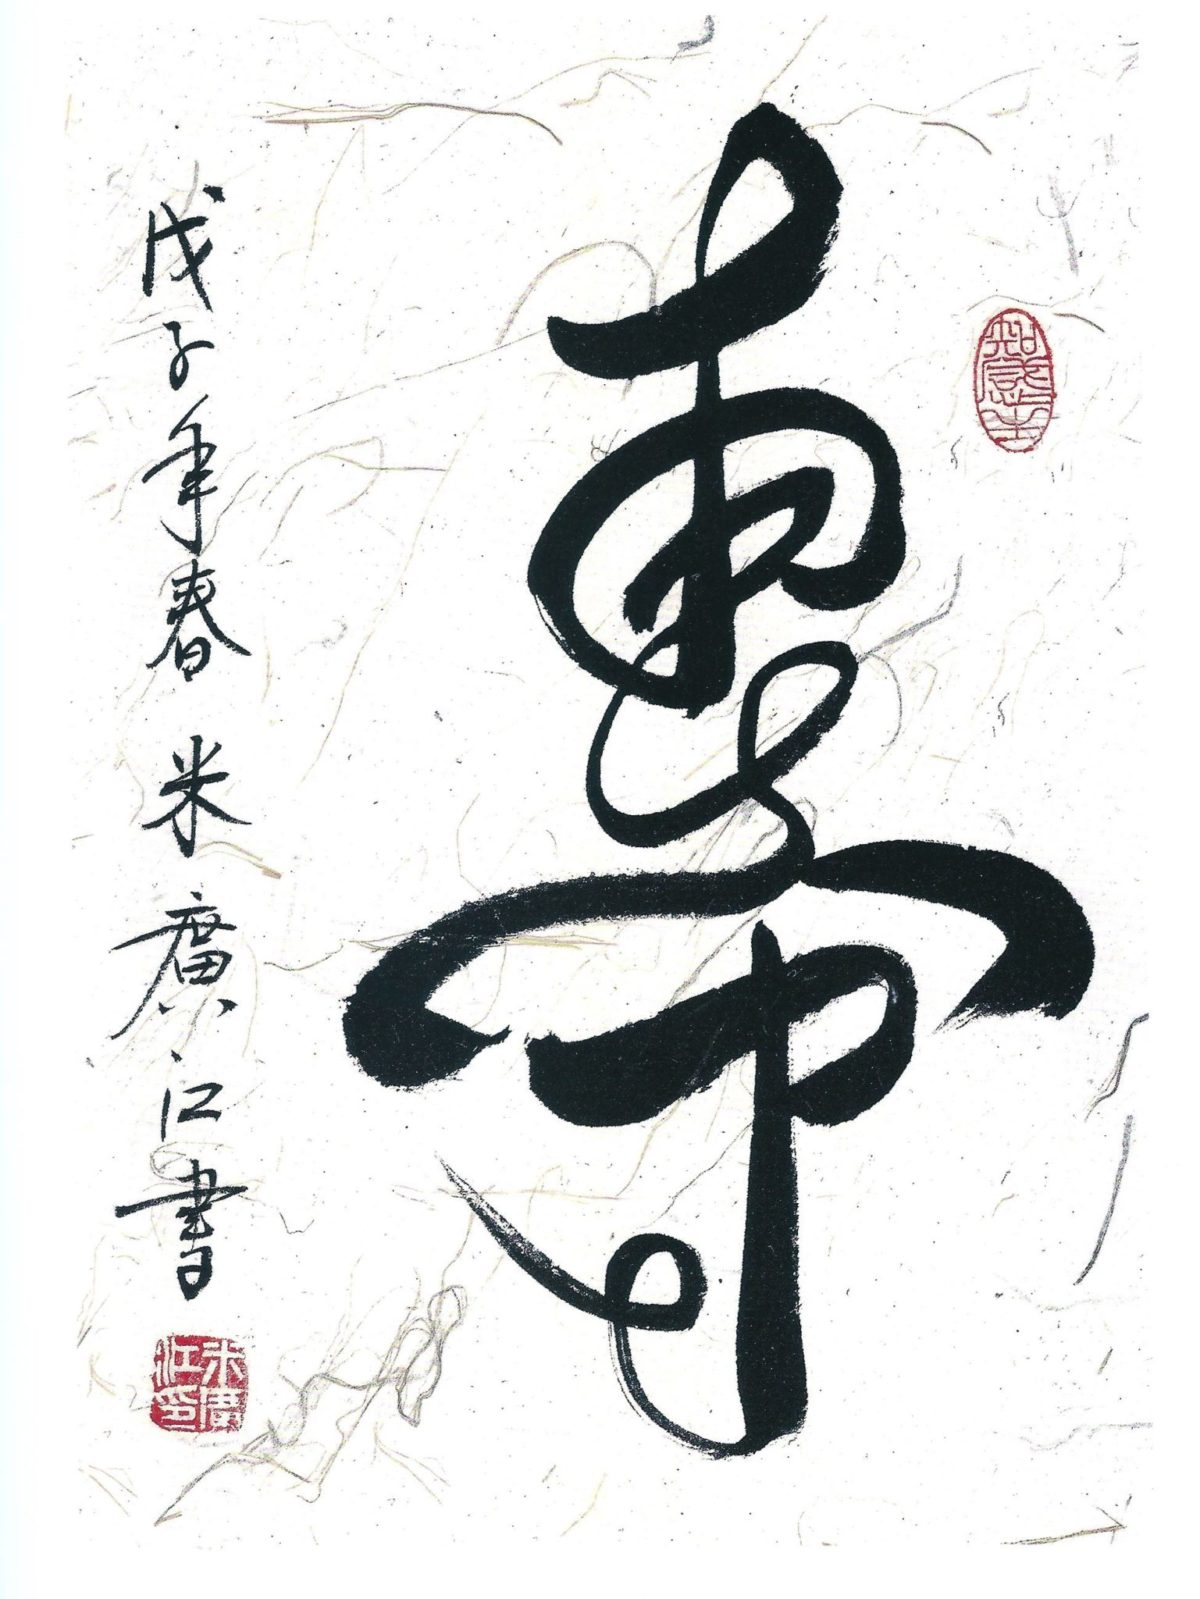 知感主
壽
戊子年春 米廣江書
米廣江印